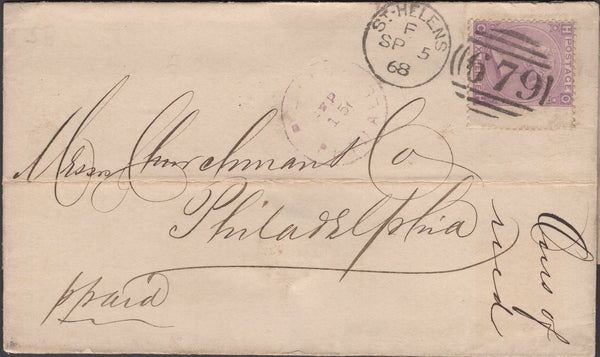 ST. HELENS
F
SP 5
68
679
POSTAGE
Messrs Churchman & Co
Philadelphia
ppaid
Ans of
recd